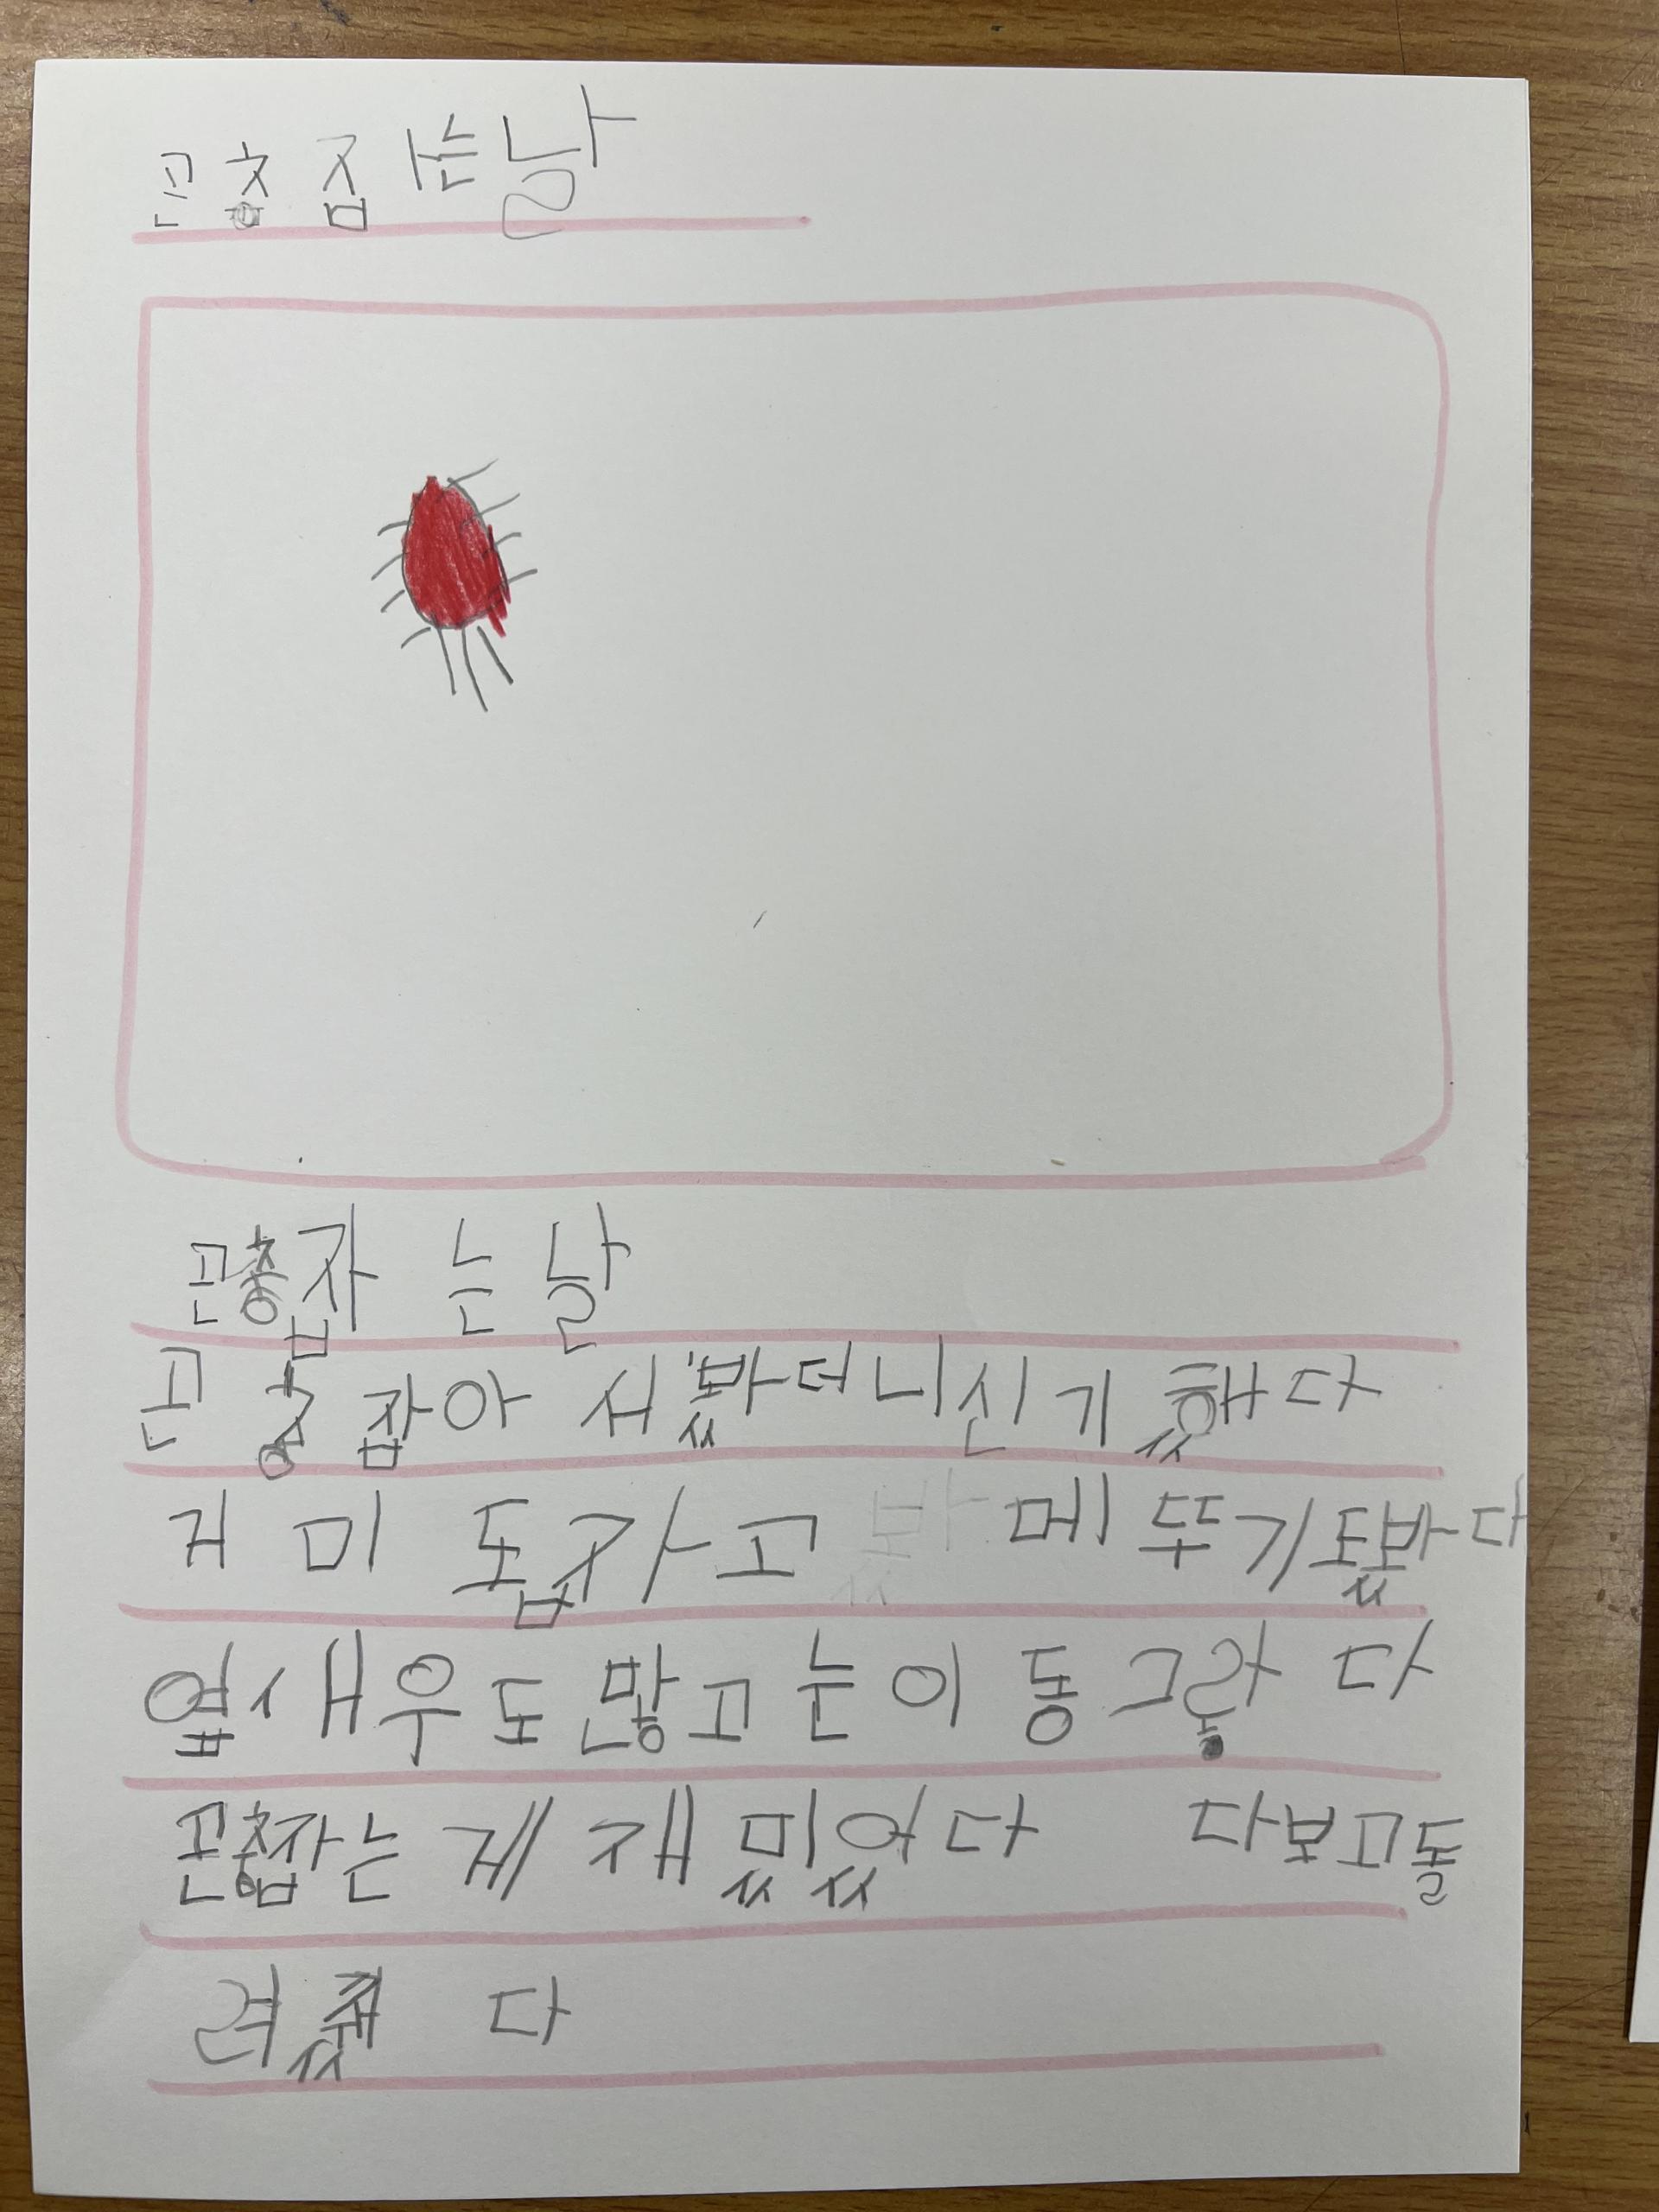 곤충 잡는날
곤충잡 는 날
곤충 잡아 서 봤더니신기 했다
거미 도잡고 메뚜기도봤다
옆새우도 많고 눈이 동그랗 다
곤충잡는 게 재 밌었다 다보고돌
려줬 다